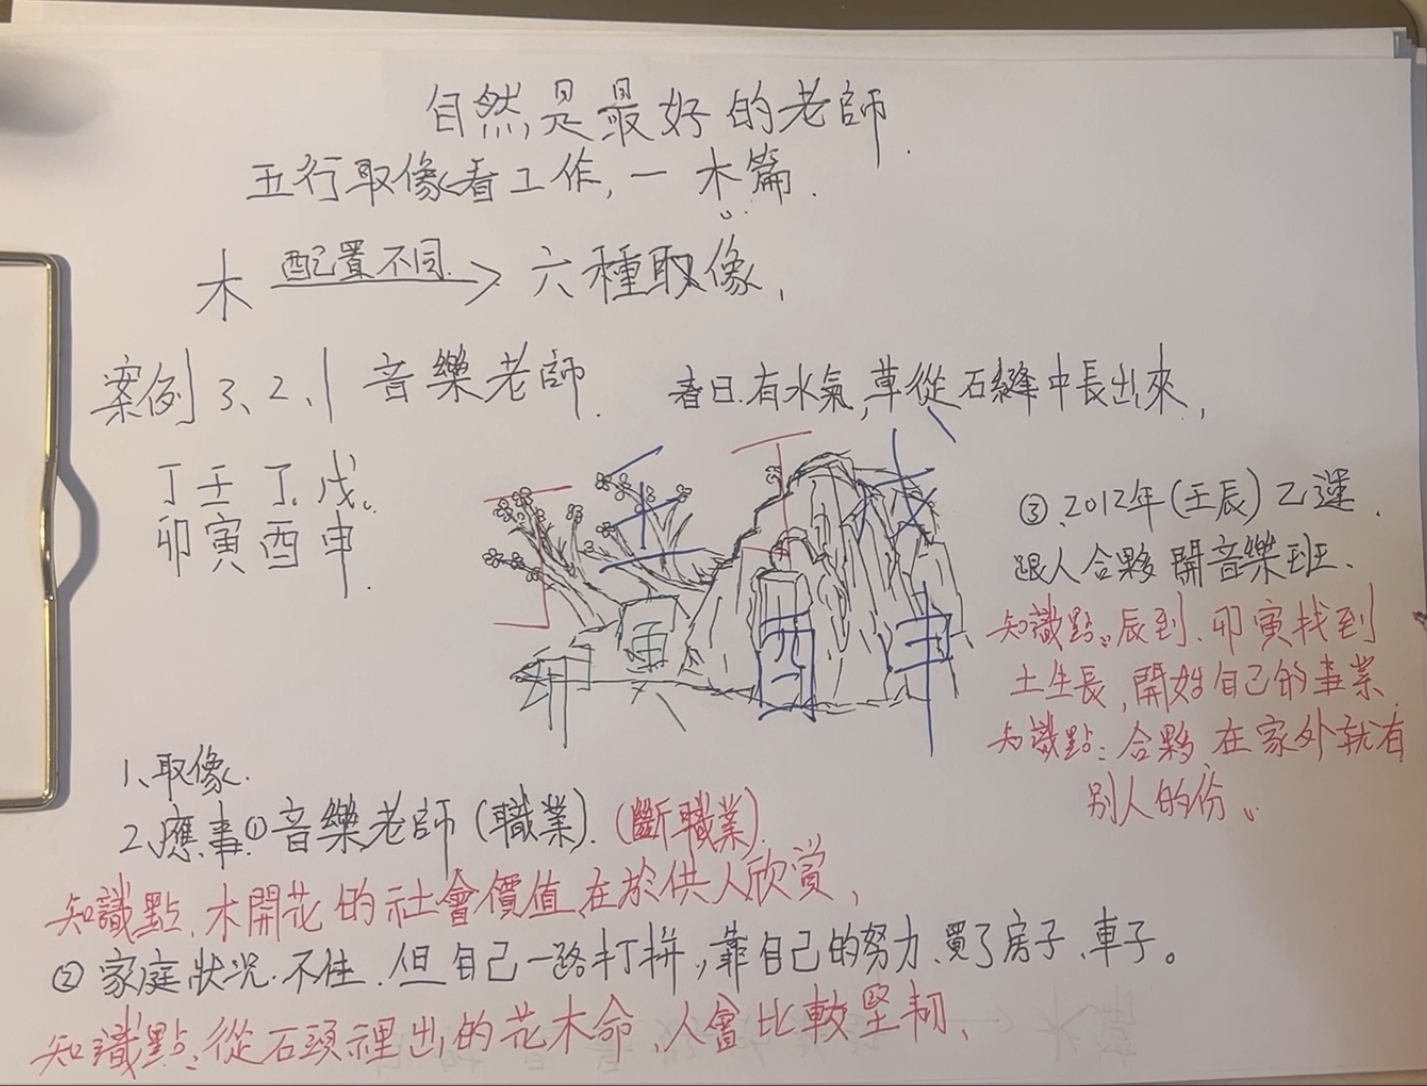 自然是最好的老師.
五行取像看工作,一 木篇.
木 配置不同 六種取像,
案例3、2、1 音樂老師. 春日.有水氣,草從石縫中長出來,
丁壬丁戊。
卯寅酉申.
丁 壬 丁 戊
卯 寅 酉 申
③、2012年(壬辰)乙運.
跟人合夥開音樂班.
知識點:辰到、卯寅找到
土生長,開始自己的事業
知識點:合夥 在家外就有
別人的份。
1、取像.
2、應事①音樂老師(職業).(斷職業).
知識點.木開花的社會價值在於供人欣賞,
②家庭狀況.不佳.但自己一路打拼,靠自己的努力、買了房子、車子。
知識點:從石頭裡出的花木命、人會比較堅韌、